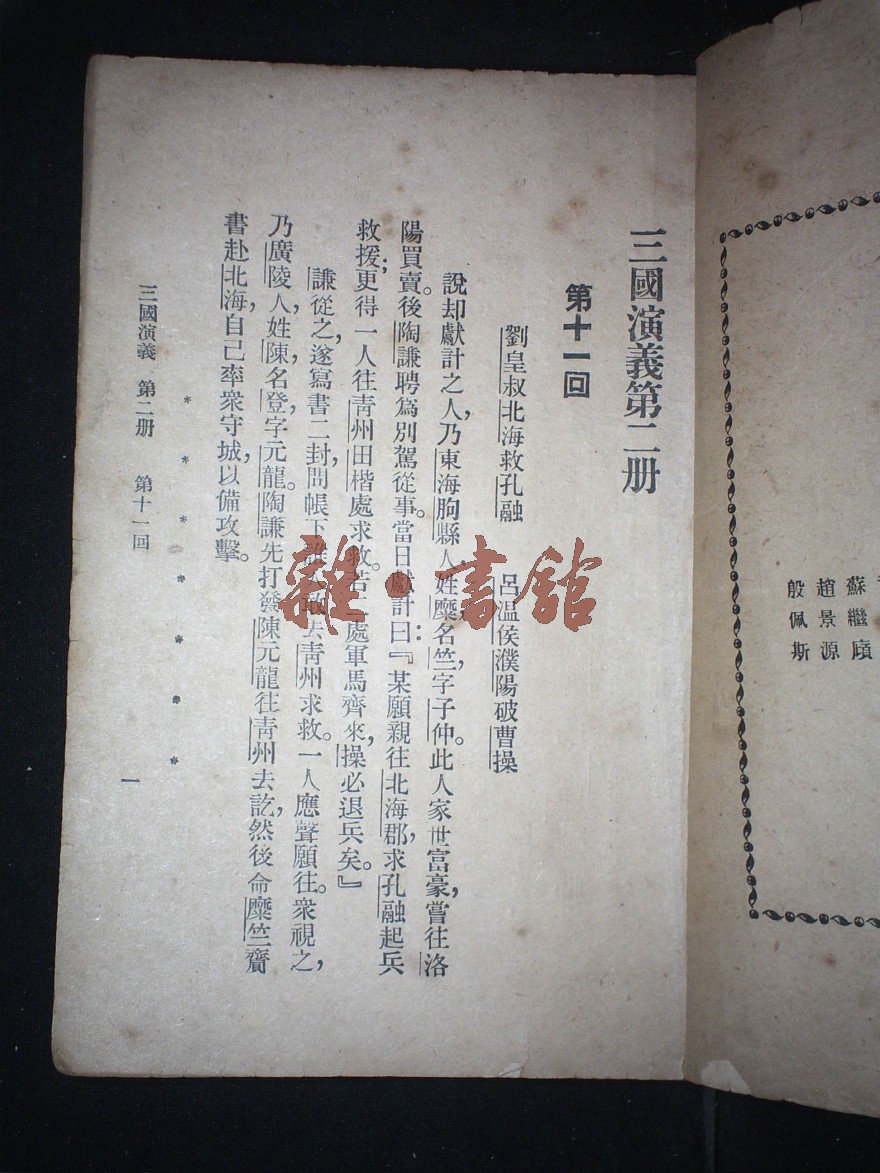 蘇繼廎
趙景源
殷佩斯
三國演義第二册
第十一回
劉皇叔北海救孔融　呂温侯濮陽破曹操
說却獻計之人，乃東海朐縣人，姓糜，名竺，字子仲。此人家世富豪，嘗往洛
陽買賣。後陶謙聘爲別駕從事。當日獻計曰：『某願親往北海郡，求孔融起兵
救援；更得一人往靑州田楷處求救。若二處軍馬齊來，操必退兵矣。』
謙從之，遂寫書二封，問帳下誰人敢去靑州求救。一人應聲願往。衆視之，
乃廣陵人，姓陳，名登，字元龍。陶謙先打發陳元龍往靑州去訖，然後命糜竺齎
書赴北海，自己率衆守城，以備攻擊。
三國演義　第二册　第十一回
一
雜·書館